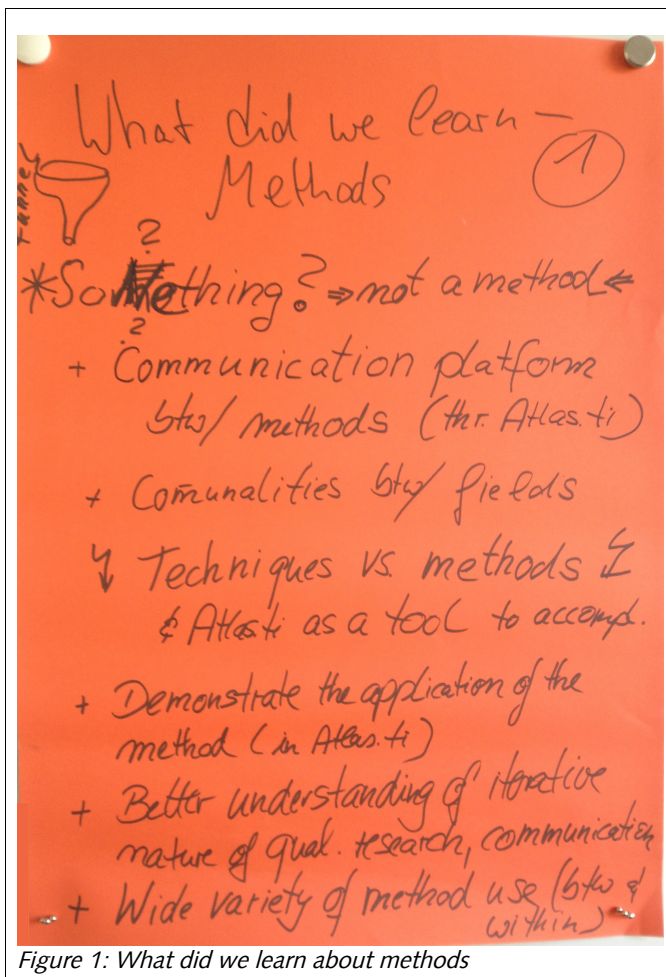 What did we learn –
Methods
1
funnel
?
*SoMething? ⇒ not a method ⇐
?
+ Communication platform
btw/ methods (thr. Atlas.ti)
+ Comunalities btw/ fields
Techniques vs. methods
& Atlas.ti as a tool to accompl.
+ Demonstrate the application of the
method (in Atlas.ti)
+ Better understanding of iterative
nature of qual. research, communication
+ Wide variety of method use (btw &
within)
Figure 1: What did we learn about methods